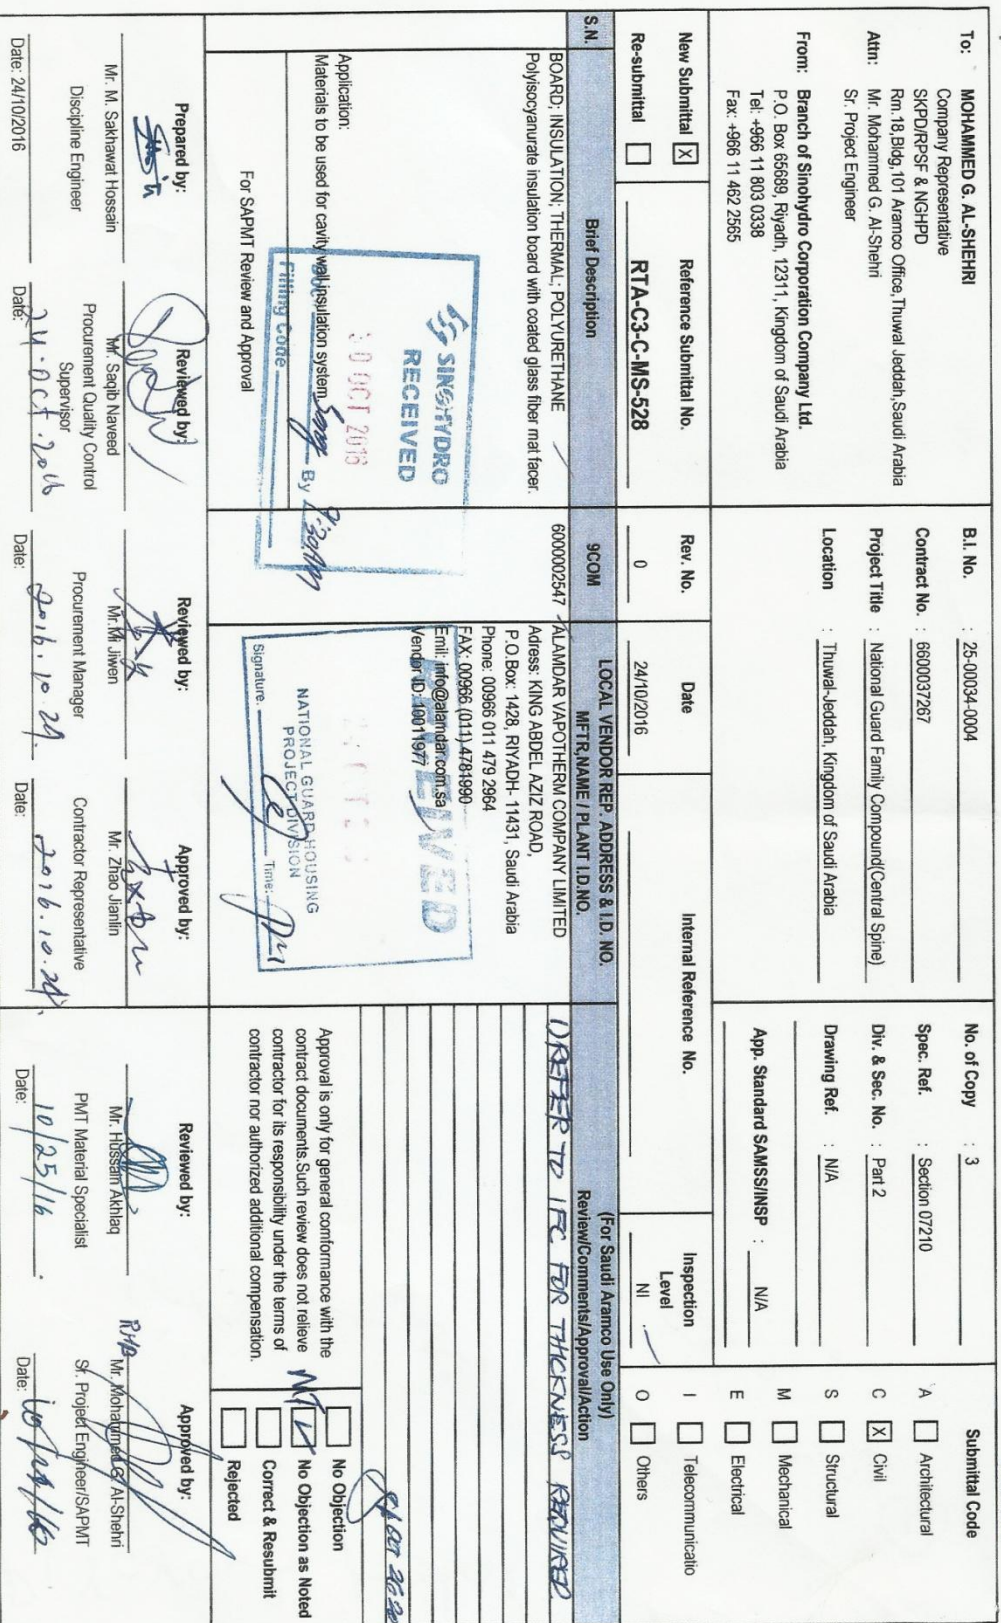 To: MOHAMMED G. AL-SHEHRI
Company Representative
SKPD/RPSF & NGHPD
Rm.18,Bldg,101 Aramco Office,Thuwal Jeddah,Saudi Arabia
Attn: Mr. Mohammed G. Al-Shehri
Sr. Project Engineer
From: Branch of Sinohydro Corporation Company Ltd.
P.O. Box 65689, Riyadh, 12311, Kingdom of Saudi Arabia
Tel: +966 11 803 0338
Fax: +966 11 462 2565
B.I. No. : 25-00034-0004
Contract No. : 6600037267
Project Title : National Guard Family Compound(Central Spine)
Location : Thuwal-Jeddah, Kingdom of Saudi Arabia
No. of Copy : 3
Spec. Ref. : Section 07210
Div. & Sec. No. : Part 2
Drawing Ref. : N/A
App. Standard SAMSS/INSP : N/A
Submittal Code
A Architectural
C X Civil
S Structural
M Mechanical
E Electrical
I Telecommunicatio
O Others
New Submittal X
Re-submittal
Reference Submittal No.
RTA-C3-C-MS-528
Rev. No.
0
Date
24/10/2016
Internal Reference No.
Inspection
Level
NI
S.N.
Brief Description
9COM
LOCAL VENDOR REP. ADDRESS & I.D. NO.
MFTR,NAME / PLANT I.D.NO.
(For Saudi Aramco Use Only)
Review/Comments/Approval/Action
BOARD; INSULATION; THERMAL; POLYURETHANE
Polyisocyanurate insulation board with coated glass fiber mat facer.
6000002547
ALAMDAR VAPOTHERM COMPANY LIMITED
Adress: KING ABDEL AZIZ ROAD,
P.O.Box: 1428, RIYADH- 11431, Saudi Arabia
Phone: 00966 011 479 2964
FAX: 00966 (011) 4781990
Emil: info@alamdar.com.sa
Vendor ID: 10011977
1) REFER TO IFC FOR THICKNESS REQUIRED
Application:
Materials to be used for cavity wall insulation system
For SAPMT Review and Approval
SINOHYDRO
RECEIVED
OCT 2016
By
Filling Code
RECEIVED
NATIONAL GUARD HOUSING
PROJECT DIVISION
Signature. Time:
Approval is only for general comformance with the
contract documents.Such review does not relieve
contractor for its responsibility under the terms of
contractor nor authorized additional compensation.
No Objection
No Objection as Noted
Correct & Resubmit
Rejected
Prepared by:
Mr. M. Sakhawat Hossain
Discipline Engineer
Date: 24/10/2016
Reviewed by:
Mr. Saqib Naveed
Procurement Quality Control
Supervisor
Date: 24.Oct.2016
Reviewed by:
Mr. Mi Jiwen
Procurement Manager
Date: 2016.10.24.
Approved by:
Mr. Zhao Jianlin
Contractor Representative
Date: 2016.10.24.
Reviewed by:
Mr. Hussain Akhlaq
PMT Material Specialist
Date: 10/25/16
Approved by:
Mr. Mohammed G. Al-Shehri
Sr. Project Engineer/SAPMT
Date: